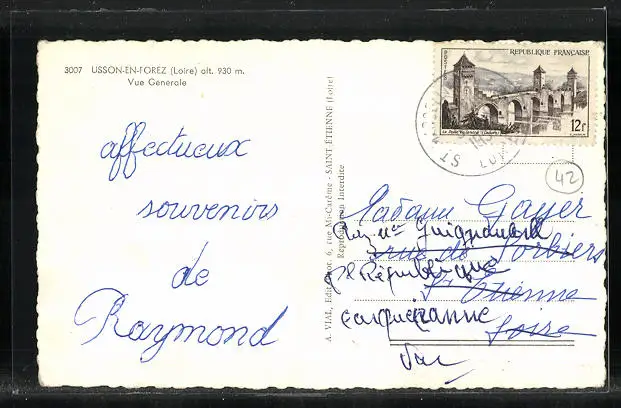 3007 USSON-EN-FOREZ (Loire) alt. 930 m.
Vue Générale
affectueux
souvenirs
de
Raymond
A. VIAL, Edit 6, rue Mi-Carême - SAINT ETIENNE (Loire)
Reproduction Interdite
REPUBLIQUE FRANÇAISE
POSTES
Le Pont Valentré (Cahors)
12F
42
Madame Gayer
rue de Sorbiers
St Etienne
Loire
Guignonard
République
Carqueiranne
Var